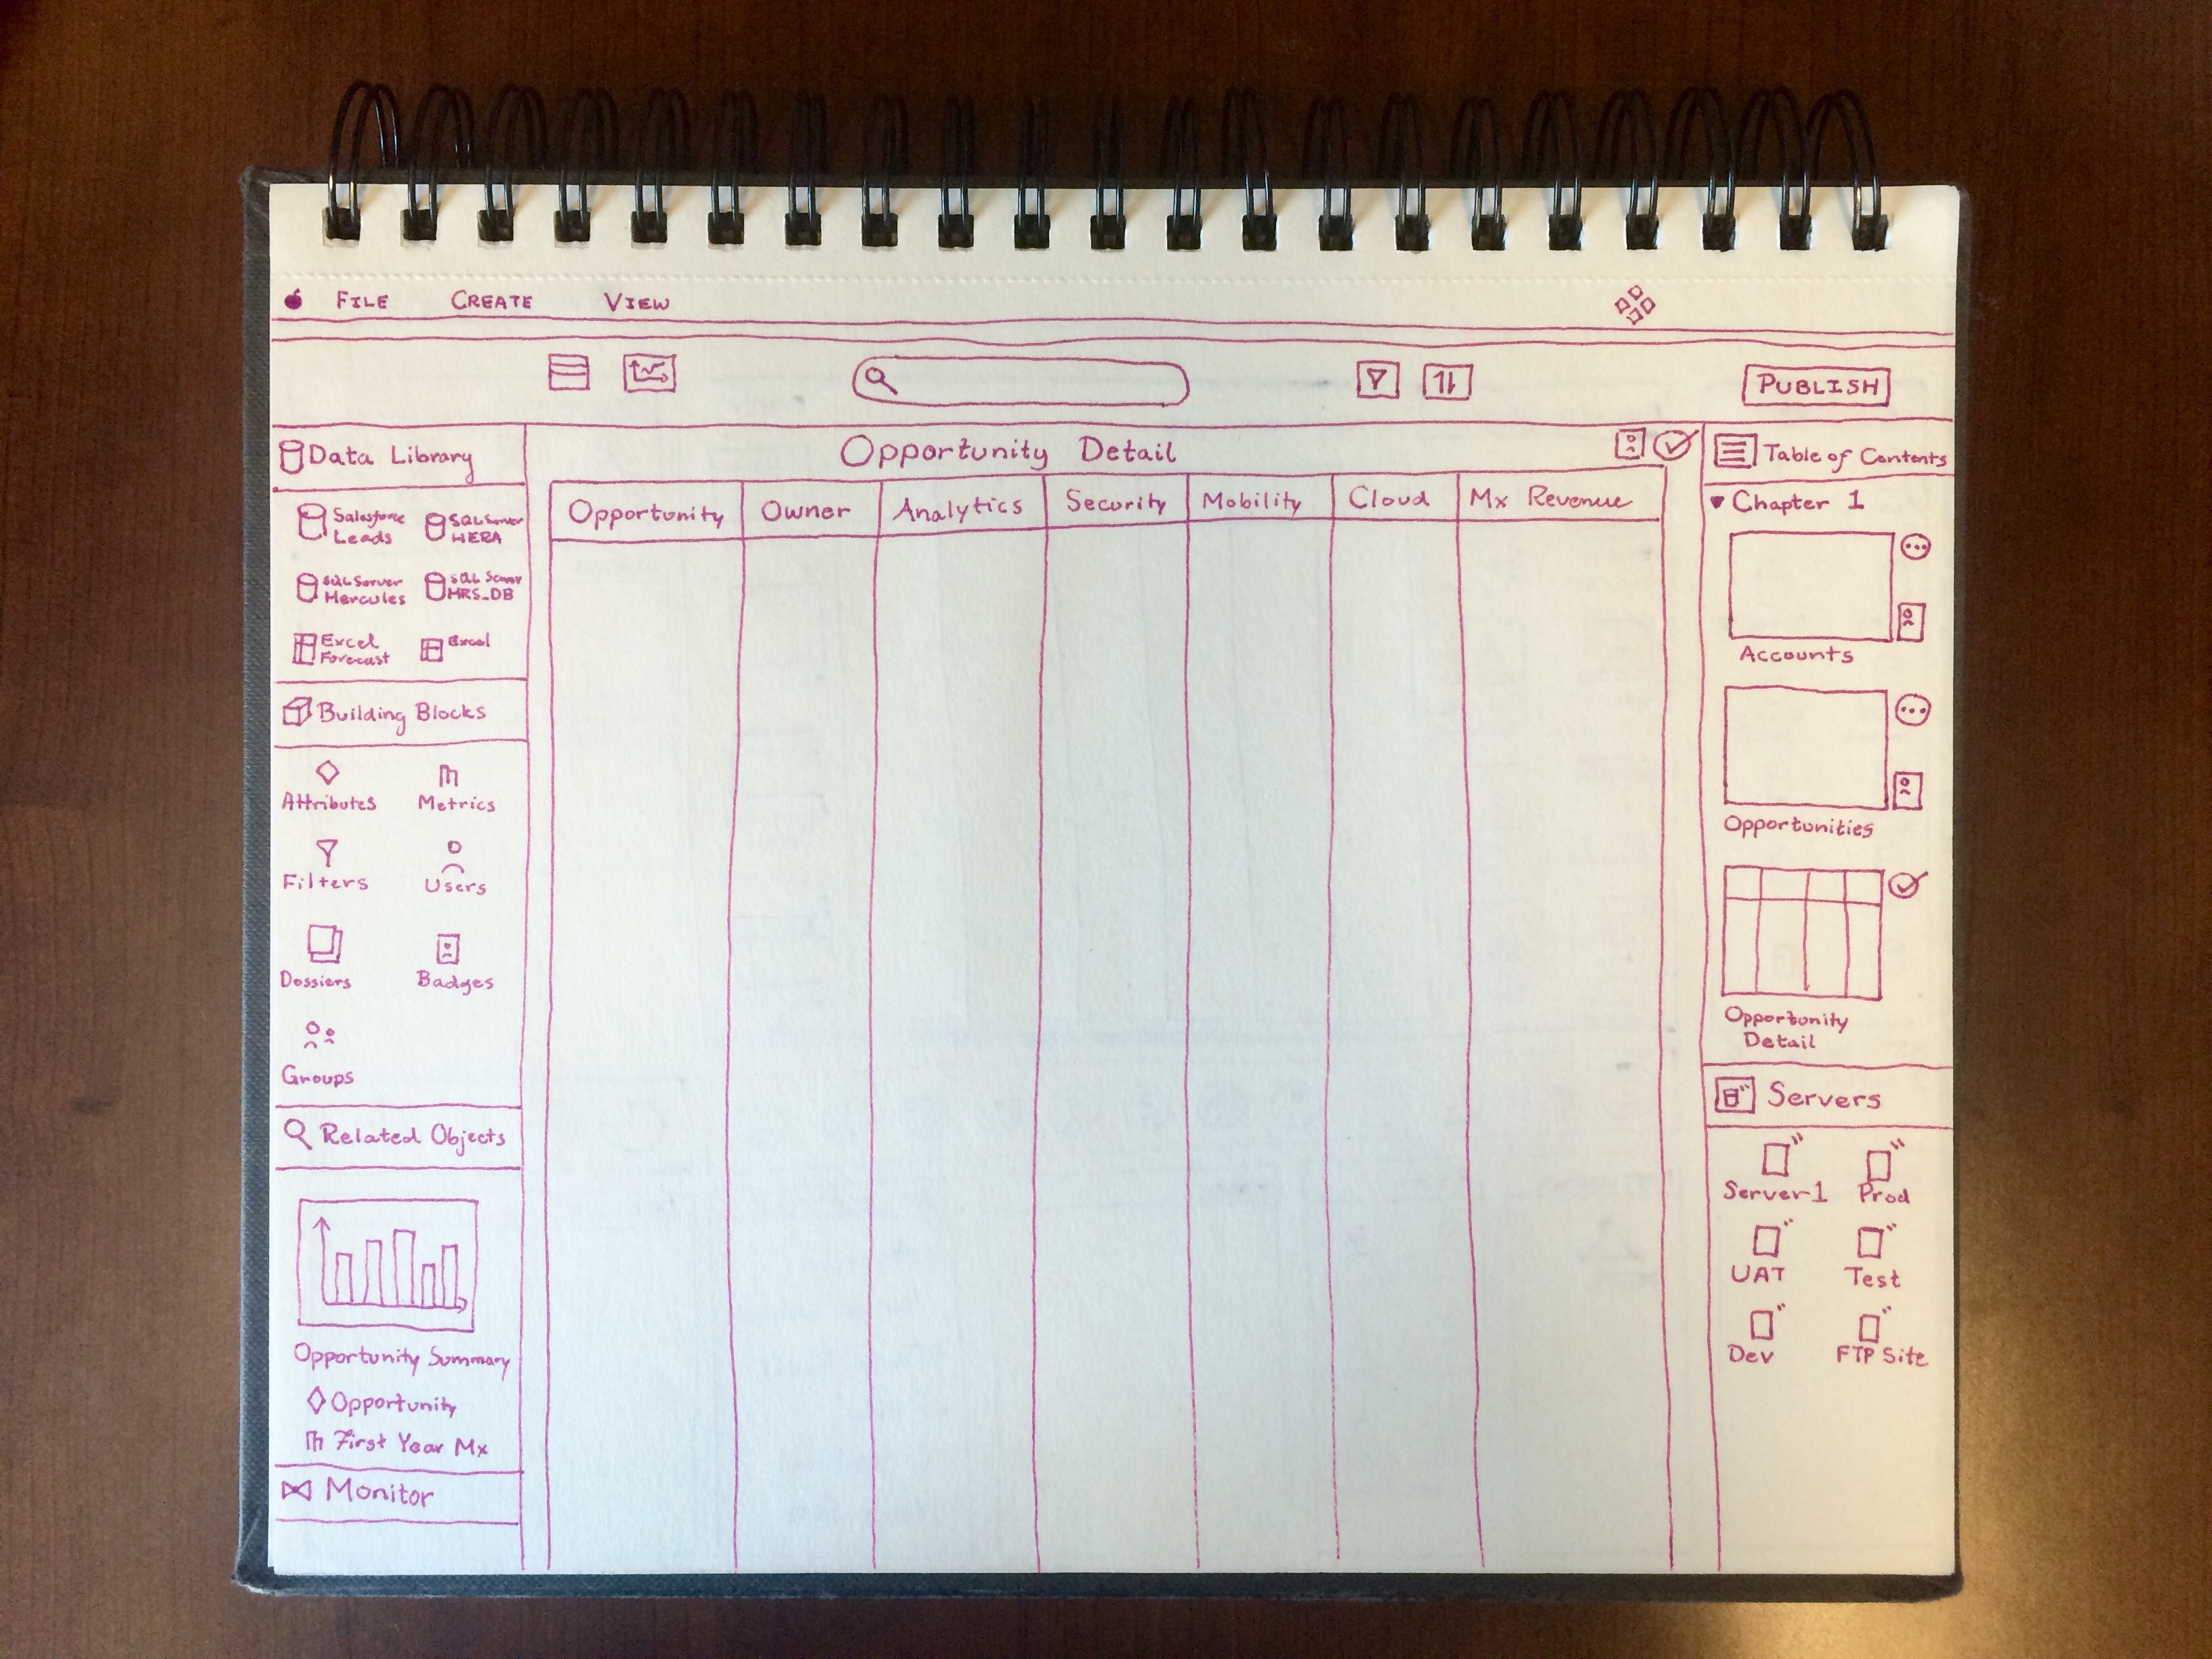 FILE CREATE VIEW
PUBLISH
Data Library
Salesforce
Leads
SQL Server
HERA
SQL Server
Hercules
SQL Server
MRS_DB
Excel
Forecast
Excel
Building Blocks
Attributes
Metrics
Filters
Users
Dossiers
Badges
Groups
Related Objects
Opportunity Summary
Opportunity
First Year Mx
Monitor
Opportunity Detail
Opportunity Owner Analytics Security Mobility Cloud Mx Revenue
Table of Contents
Chapter 1
Accounts
Opportunities
Opportunity
Detail
Servers
Server1 Prod
UAT Test
Dev FTP Site